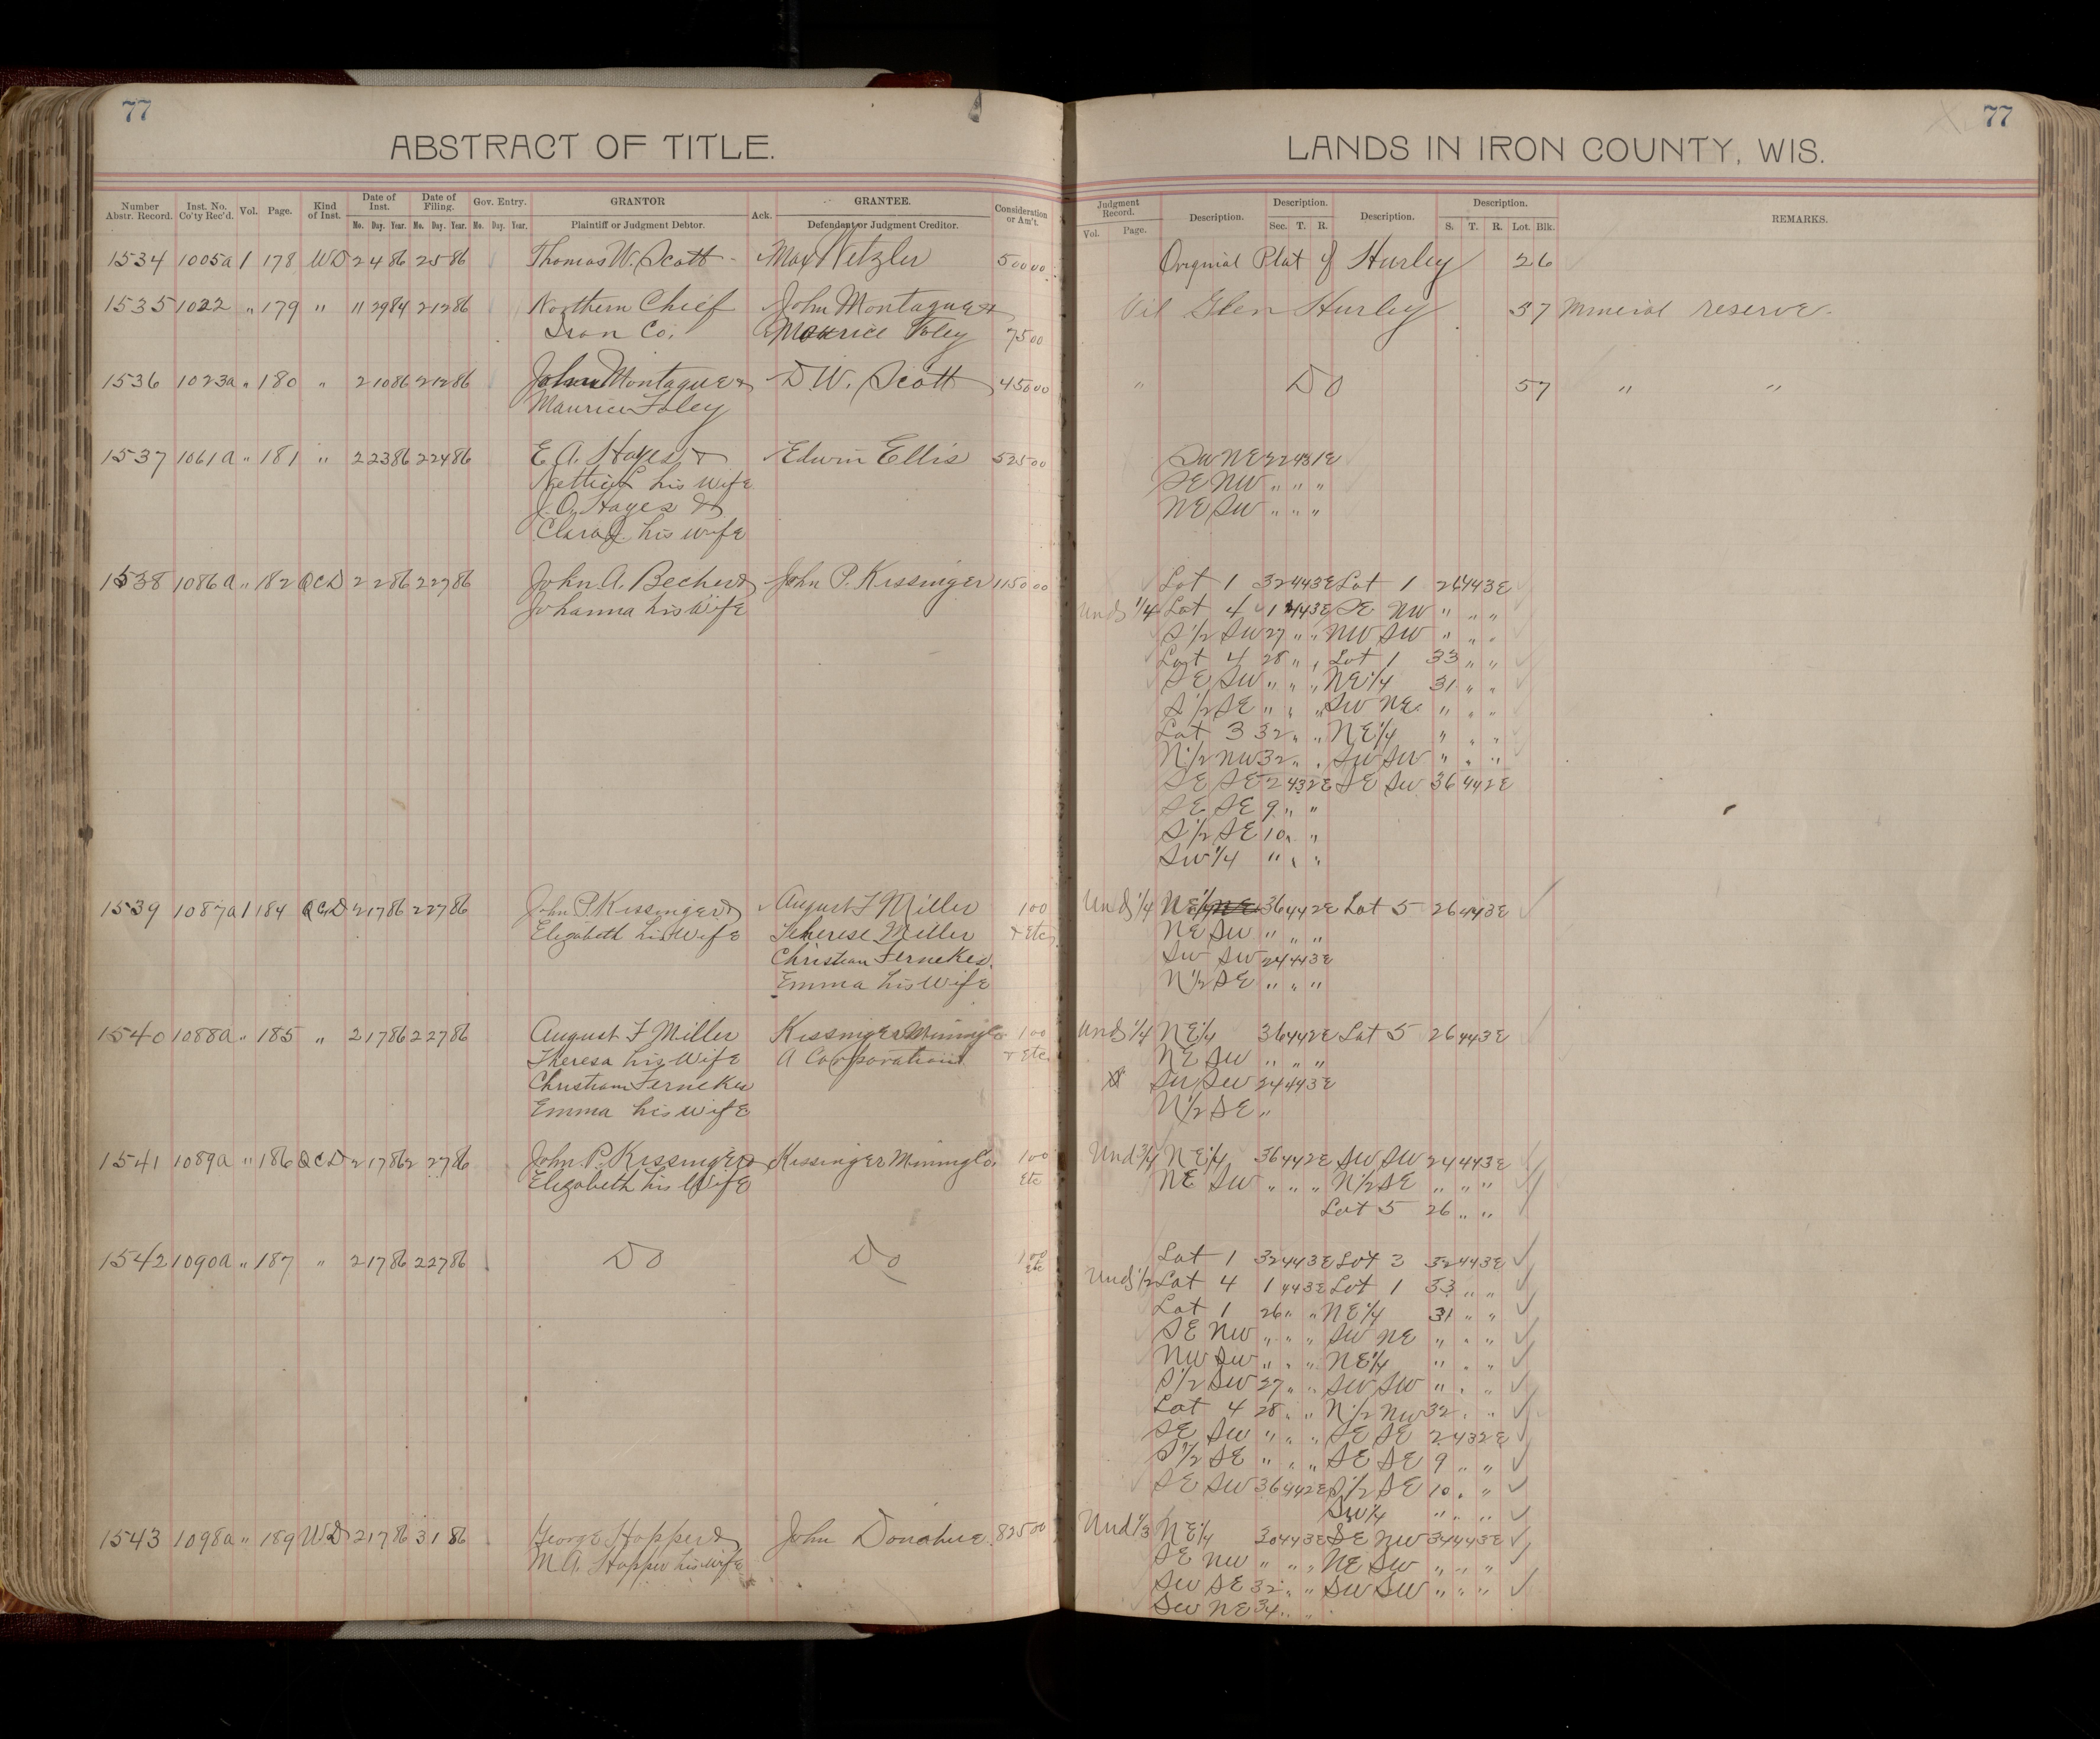 77
ABSTRACT OF TITLE.
Number Abstr. Record. Inst. No. Co'ty Rec'd. Vol. Page. Kind of Inst. Date of Inst. Mo. Day. Year. Date of Filing. Mo. Day. Year. Gov. Entry. Mo. Day. Year. GRANTOR Plaintiff or Judgment Debtor. Ack. GRANTEE. Defendant or Judgment Creditor. Consideration or Am't.
1534 1005a 1 178 WD 2 4 86 2 5 86 Thomas W. Scott Max Wetzler 500 00
1535 1022 " 179 " 11 29 84 2 12 86 Northern Chief John Montague &
Iron Co. Maurice Foley 75 00
1536 1023a " 180 " 2 10 86 2 12 86 John Montague & D W. Scott 450 00
Maurice Foley
1537 1061a " 181 " 2 23 86 2 24 86 E. A. Hayes & Edwin Ellis 525 00
Nettie his wife
J. O. Hayes &
Clara J. his wife
1538 1086a " 182 QCD 2 2 86 2 27 86 John A. Becher & John P. Kissinger 1150 00
Johanna his wife
1539 1087a 1 184 QCD 2 17 86 2 27 86 John P. Kissinger & August F Miller 1 00
Elizabeth his wife Therese Miller & Etc
Christian Fernekes
Emma his wife
1540 1088a " 185 " 2 17 86 2 27 86 August F Miller Kissinger Mining Co 1 00
Theresa his wife A Corporation & Etc
Christian Fernekes
Emma his wife
1541 1089a " 186 QCD 2 17 86 2 27 86 John P. Kissinger & Kissinger Mining Co. 1 00
Elizabeth his wife Etc
1542 1090a " 187 " 2 17 86 2 27 86 Do Do 1 00
Etc
1543 1098a " 189 WD 2 17 86 3 1 86 George Hopper & John Donahue 825 00
M. A. Hopper his wife
77
LANDS IN IRON COUNTY, WIS.
Judgment Record. Vol. Page. Description. Description. Sec. T. R. Description. Description. S. T. R. Lot. Blk. REMARKS.
Orignial Plat of Hurley 26
Vil Glen Hurley 57 Mineral reserve.
" Do 57 " "
SW NE 22 43 1E
SE NW " " "
NE SW " " "
Lot 1 32 44 3E Lot 1 26 44 3E
Und 1/4 Lot 4 1 44 3E SE NW " " "
S 1/2 SW 27 " " NW SW " " "
Lot 4 28 " " Lot 1 33 " "
SE SW " " " NE 1/4 31 " "
S 1/2 SE " " " SW NE " " "
Lot 3 32 " " NE 1/4 " " "
N 1/2 NW 32 " " SW SW " " "
SE SE 2 43 2E SE SW 36 44 2E
SE SE 9 " "
S 1/2 SE 10 " "
SW 1/4 " " "
Und 1/4 NE 1/4 36 44 2E Lot 5 26 44 3E
NE SW " " "
SW SW 24 44 3E
N 1/2 SE " " "
Und 1/4 NE 1/4 36 44 2E Lot 5 26 44 3E
NE SW " " "
SW SW 24 44 3E
N 1/2 SE "
Und 3/4 NE 1/4 36 44 2E SW SW 24 44 3E
NE SW " " " N 1/2 SE " " "
Lot 5 26 " "
Lot 1 32 44 3E Lot 3 32 44 3E
Und 1/2 Lot 4 1 44 3E Lot 1 33 " "
Lot 1 26 " " NE 1/4 31 " "
SE NW " " " SW NE " " "
NW SW " " " NE 1/4 " " "
S 1/2 SW 27 " " SW SW " " "
Lot 4 28 " " N 1/2 NW 32 " "
SE SW " " " SE SE 2 43 2E
S 1/2 SE " " " SE SE 9 " "
SE SW 36 44 2E S 1/2 SE 10 " "
SW 1/4 " " "
Und 1/3 NE 1/4 30 44 3E SE NW 34 44 3E
SE NW " " " NE SW " " "
SW SE 32 " " SW SW " " "
SW NE 34 " "